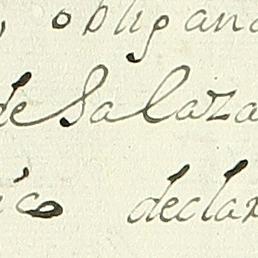 , obligan
de Salaza
ico declar